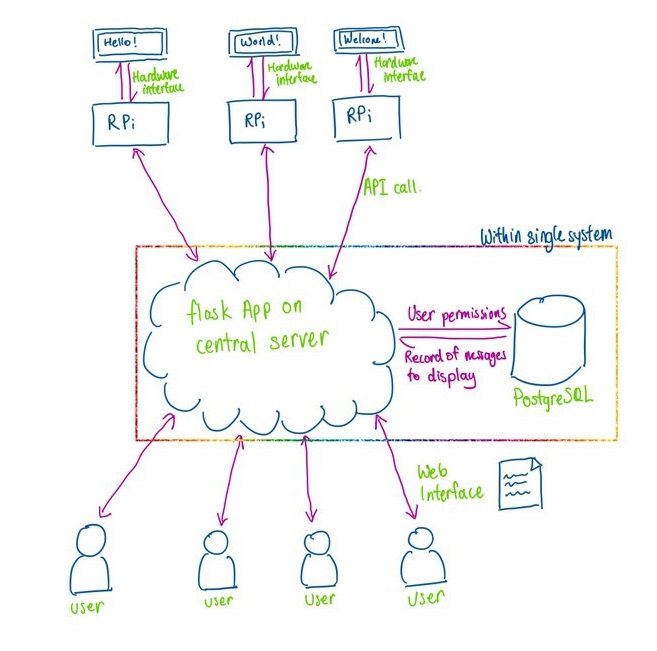 Hello!
World!
Welcome!
Hardware
interface
Hardware
interface
Hardware
interface
RPi
RPi
RPi
API call.
Within single system
flask App on
central server
User permissions
Record of messages
to display
PostgreSQL
Web
Interface
User
User
User
User